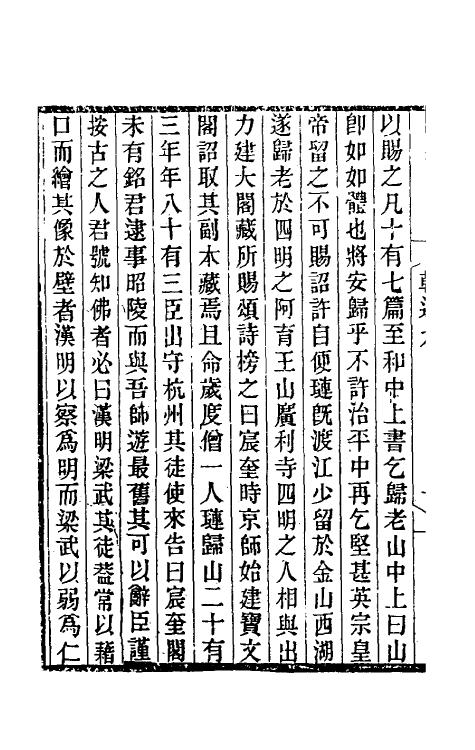 以賜之凡十有七篇至和中上書乞歸老山中上曰山
卽如如體也將安歸乎不許治平中再乞堅甚英宗皇
帝留之不可賜詔許自便璉旣渡江少留於金山西湖
遂歸老於四明之阿育王山廣利寺四明之人相與出
力建大閣藏所賜頌詩榜之曰宸奎時京師始建寶文
閣詔取其副本藏焉且命歲度僧一人璉歸山二十有
三年年八十有三臣出守杭州其徒使來告曰宸奎閣
未有銘君逮事昭陵而與吾師遊最舊其可以辭臣謹
按古之人君號知佛者必曰漢明梁武其徒葢常以藉
口而繪其像於壁者漢明以察爲明而梁武以弱爲仁